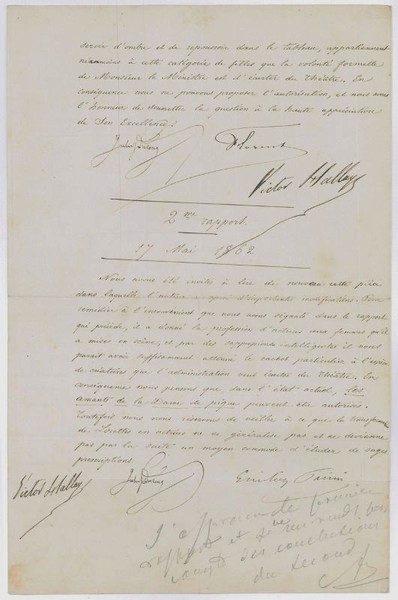 servir d'ombre et de repoussoir dans le tableau, appartiennent
néanmoins à cette catégorie de filles que la volonté formelle
de Monsieur le Ministre est d'écarter du théâtre. En
conséquence nous ne pouvons proposer l'autorisation, et nous avons
l'honneur de soumettre la question à la haute appréciation
de Son Excellence.
Florent
Victor Hallays
2me rapport.
17 Mai 1862
Nous avons été invité à lire de nouveau cette pièce
dans laquelle l'auteur a opéré d'importantes modifications. Pour
remédier à l'inconvénient que nous avions signalé dans le rapport
qui précède, il a donné la profession d'actrices aux femmes qu'il
a mises en scène, et par des suppressions intelligentes il nous
paraît avoir suffisamment atténué le cachet particulier à l'espèce
de créatures que l'administration veut écarter du théâtre. En
conséquence nous pensons que, dans l'état actuel, les
amants de la Dame de pique peuvent être autorisés.
Toutefois nous nous réservons de veiller à ce que le
de en actrices ne se généralise pas et ne devienne
pas par la suite un moyen commode d'éluder de sages
prescriptions.
Victor Hallays
J'approuve le premier
rapport et
compte des conclusions
du second